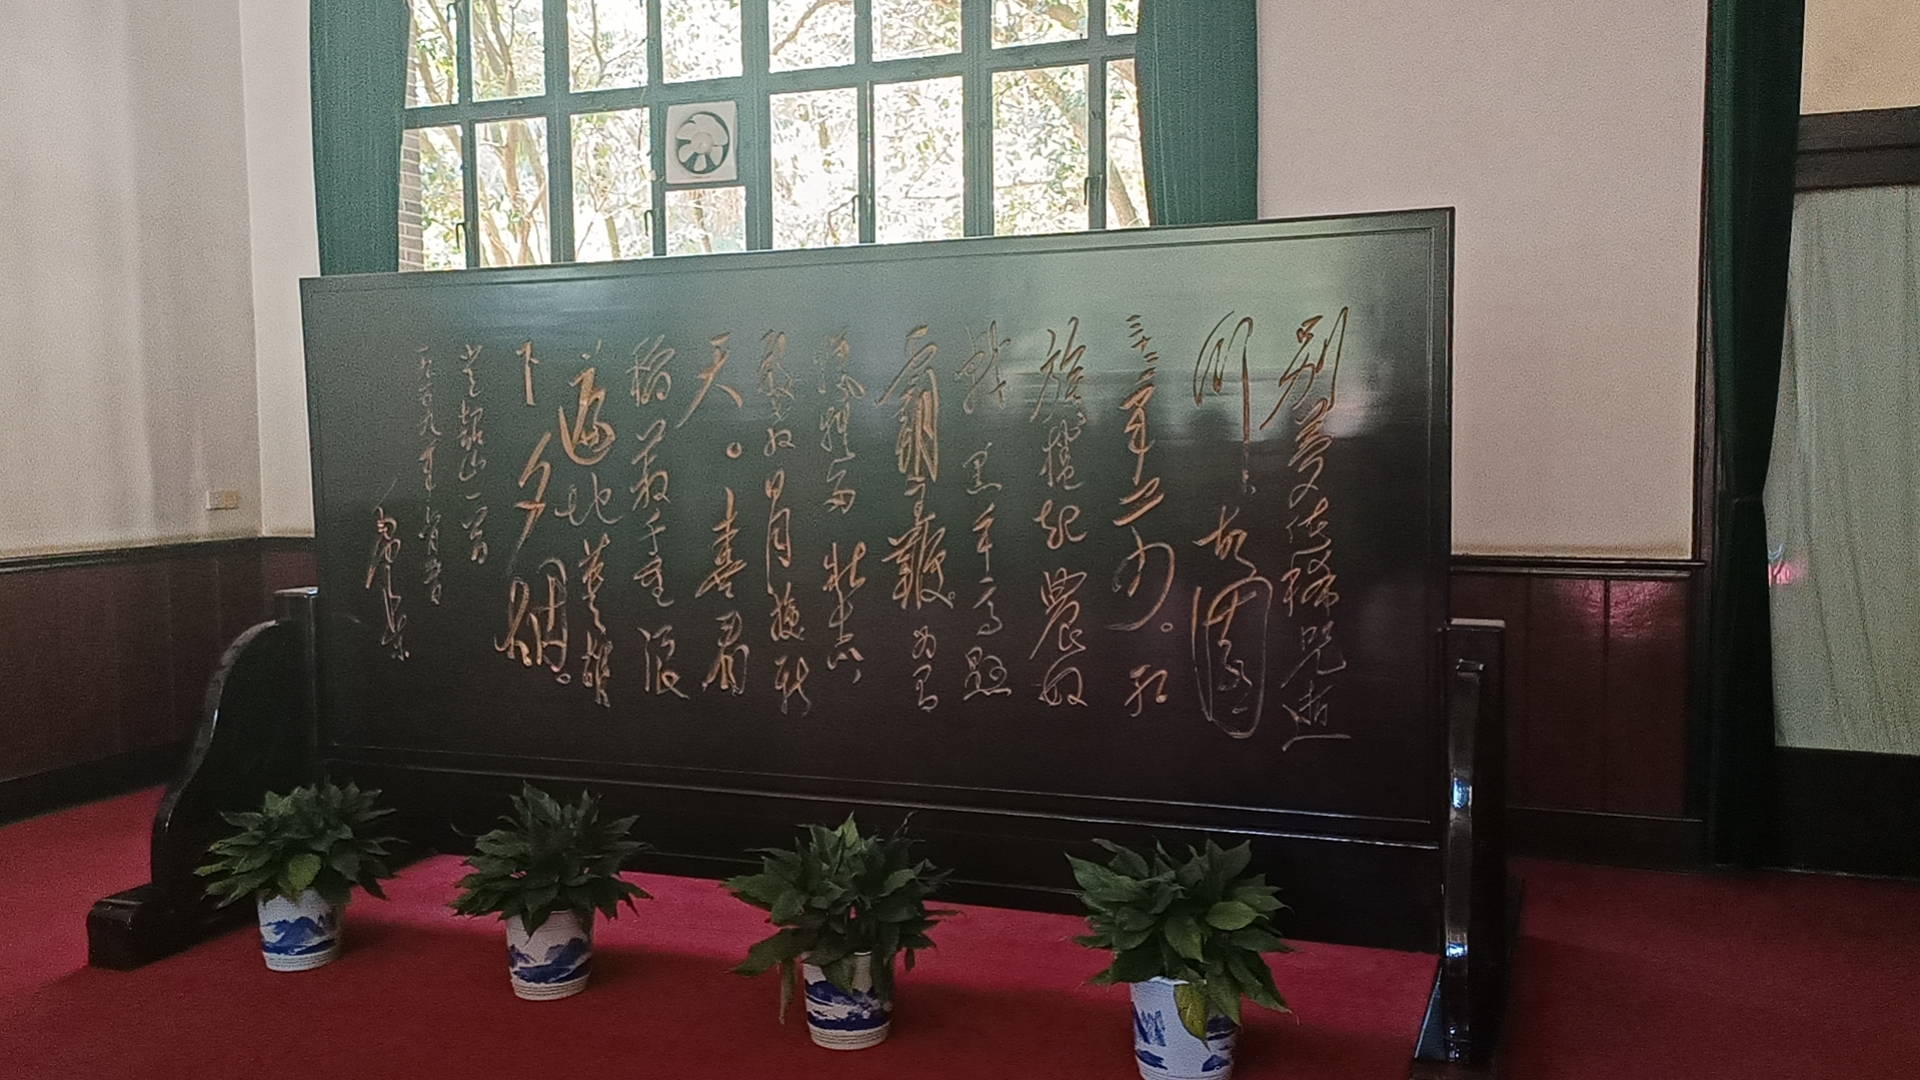 别梦依稀咒逝
川，故园
三十二年前。红
旗捲起農奴
戟黑手高懸
霸主鞭。为有
犧牲多壮志
敢教日月换新
天。喜看
稻菽千重浪
遍地英雄
下夕烟。
韶山一首
一九五九年
毛泽东